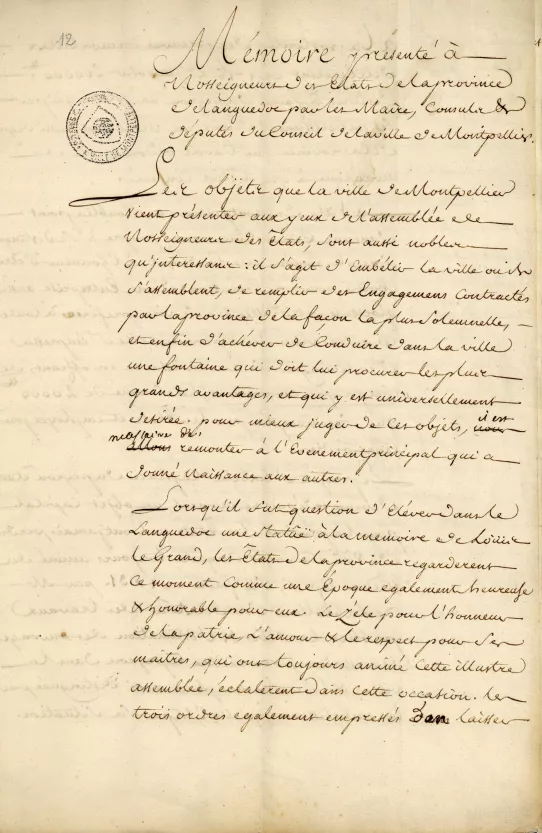 12
Mémoire présenté à
Nosseigneurs des Etats de la province
de languedoc par les Maire, Consuls &
députés du Conseil de la ville de Montpellier.
Les objets que la ville de Montpellier
vient présenter aux yeux de l'assemblée de
Nosseigneurs des Etats, sont aussi nobles
qu'interessans : il s'agit d'Embélir la ville où ils
s'assemblent, de remplir des Engagemens Contractés
par la province de la façon la plus Solemnelles,
et enfin d'achever de Conduire dans la ville
une fontaine qui doit lui procurer les plus
grands avantages, et qui y est universellement
désirée. pour mieux juger de Ces objets, il est
nécessaire de
remonter à l'Evenement principal qui a
donné Naissance aux autres.
Lorsqu'il fut question d'Elever dans le
Languedoc une Statüe à la memoire de Loüis
le Grand, les Etats de la province regarderent
Ce moment Comme une Epoque egalement heureuse
& honorable pour eux. Le Zéle pour l'honneur
de la patrie, L'amour & le respect pour Ses
maitres, qui ont toujours animé Cette illustre
assemblée, éclaterent dans cette occasion. les
trois ordres egalement empressés laisser